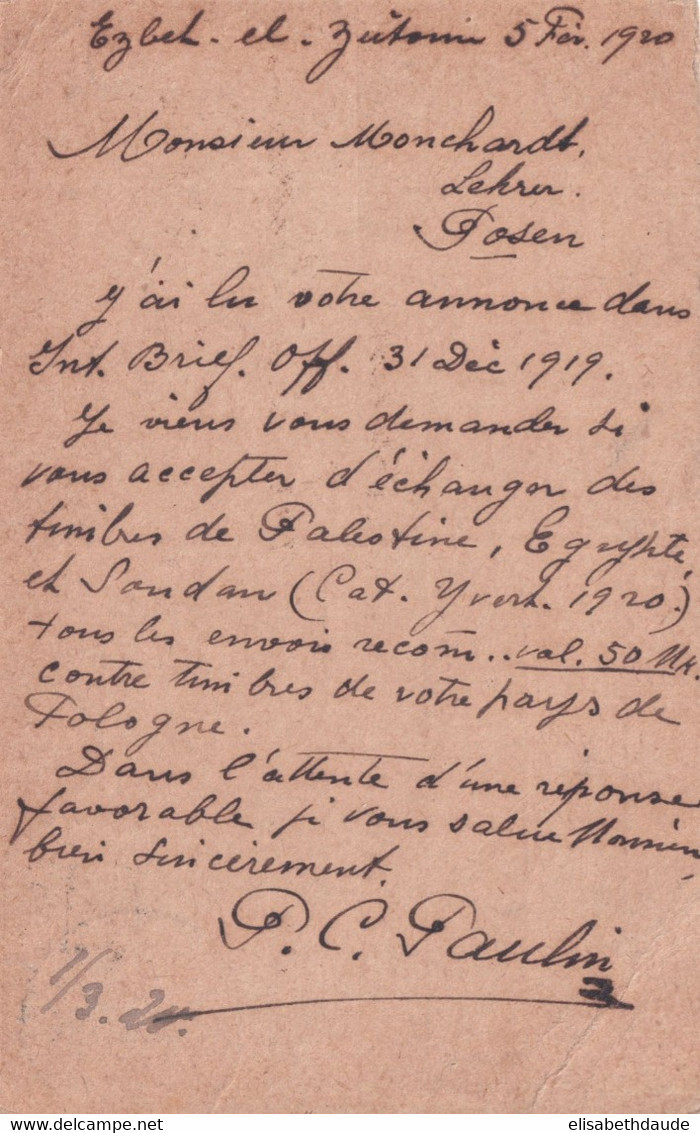 Ezbet - el - Zeitoun 5 Fév. 1920
Monsieur Monchardt.
Lehrer.
Posen
J'ai lu votre annonce dans
Int. Brief. Off. 31 Déc 1919.
Je viens vous demander si
vous accepter d'échanger des
timbres de Palestine, Egypte,
et Soudan (Cat. Yvert. 1920.)
tous les envois recom.. val. 50 Mk.
contre timbres de votre pays de
Pologne.
Dans l'attente d'une réponse
favorable je vous salue Monsieur,
bien sincèrement.
P. C. Paulin
1/3.20.
elisabethdaude